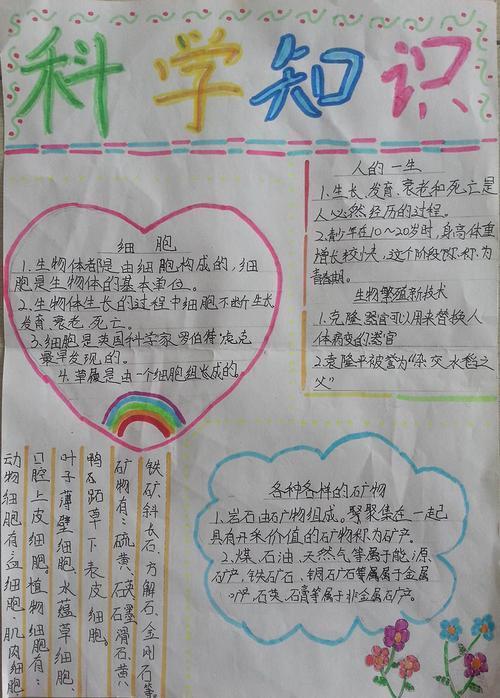 科学知识
人的一生
1、生长、发育、衰老和死亡是
人必然经历的过程。
2、青少年在10~20岁时,身高体重
增长较快,这个阶段称为
青春期。
生物繁殖新技术
1、克隆器官可以用来替换人
体病变的器官
2、袁隆平被誉为“杂交水稻之
父”
细胞
1、生物体都是由细胞构成的,细
胞是生物体的基本单位。
2、生物体生长的过程中细胞不断生长
发育、衰老、死亡。
3、细胞是英国科学家罗伯特·虎克
最早发现的。
4、草履是由一个细胞组长成的。
动物细胞有:血细胞、肌肉细胞
口腔上皮细胞。植物细胞有:
叶子薄壁细胞、水蕴草细胞、
鸭石跖草下表皮细胞。
矿物有:硫黄、石英、石墨、滑石、黄
铁矿、斜长石、方解石、金刚石等。
各种各样的矿物
1、岩石由矿物组成。聚聚集在一起
具有开采价值的矿物称为矿产。
2、煤、石油、天然气等属于能源
矿产,铁矿石、铜矿石等属属于金属
矿产,石英、石膏等属于非金属矿产。